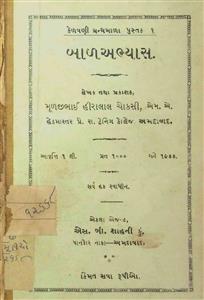 કેળવણી ગ્રન્થમાળા પુસ્તક ૧
બાળઅભ્યાસ.
લેખક તથા પ્રકાશક,
મૂળજીભાઈ હીરાલાલ ચોકસી, એમ. એ.
હેડમાસ્તર પ્રે. રા. ટ્રેનિંગ કૉલેજ અમદાવાદ.
આવૃત્તિ ૧ લી.
પ્રત ૧૦૦૦
સને ૧૯૩૩.
સર્વ હક સ્વાધીન.
એકલા એજન્ટ,
એસ. બી. શાહની કું.
પાનકોર નાકા—અમદાવાદ.
કિંમત સવા રૂપીઓ.